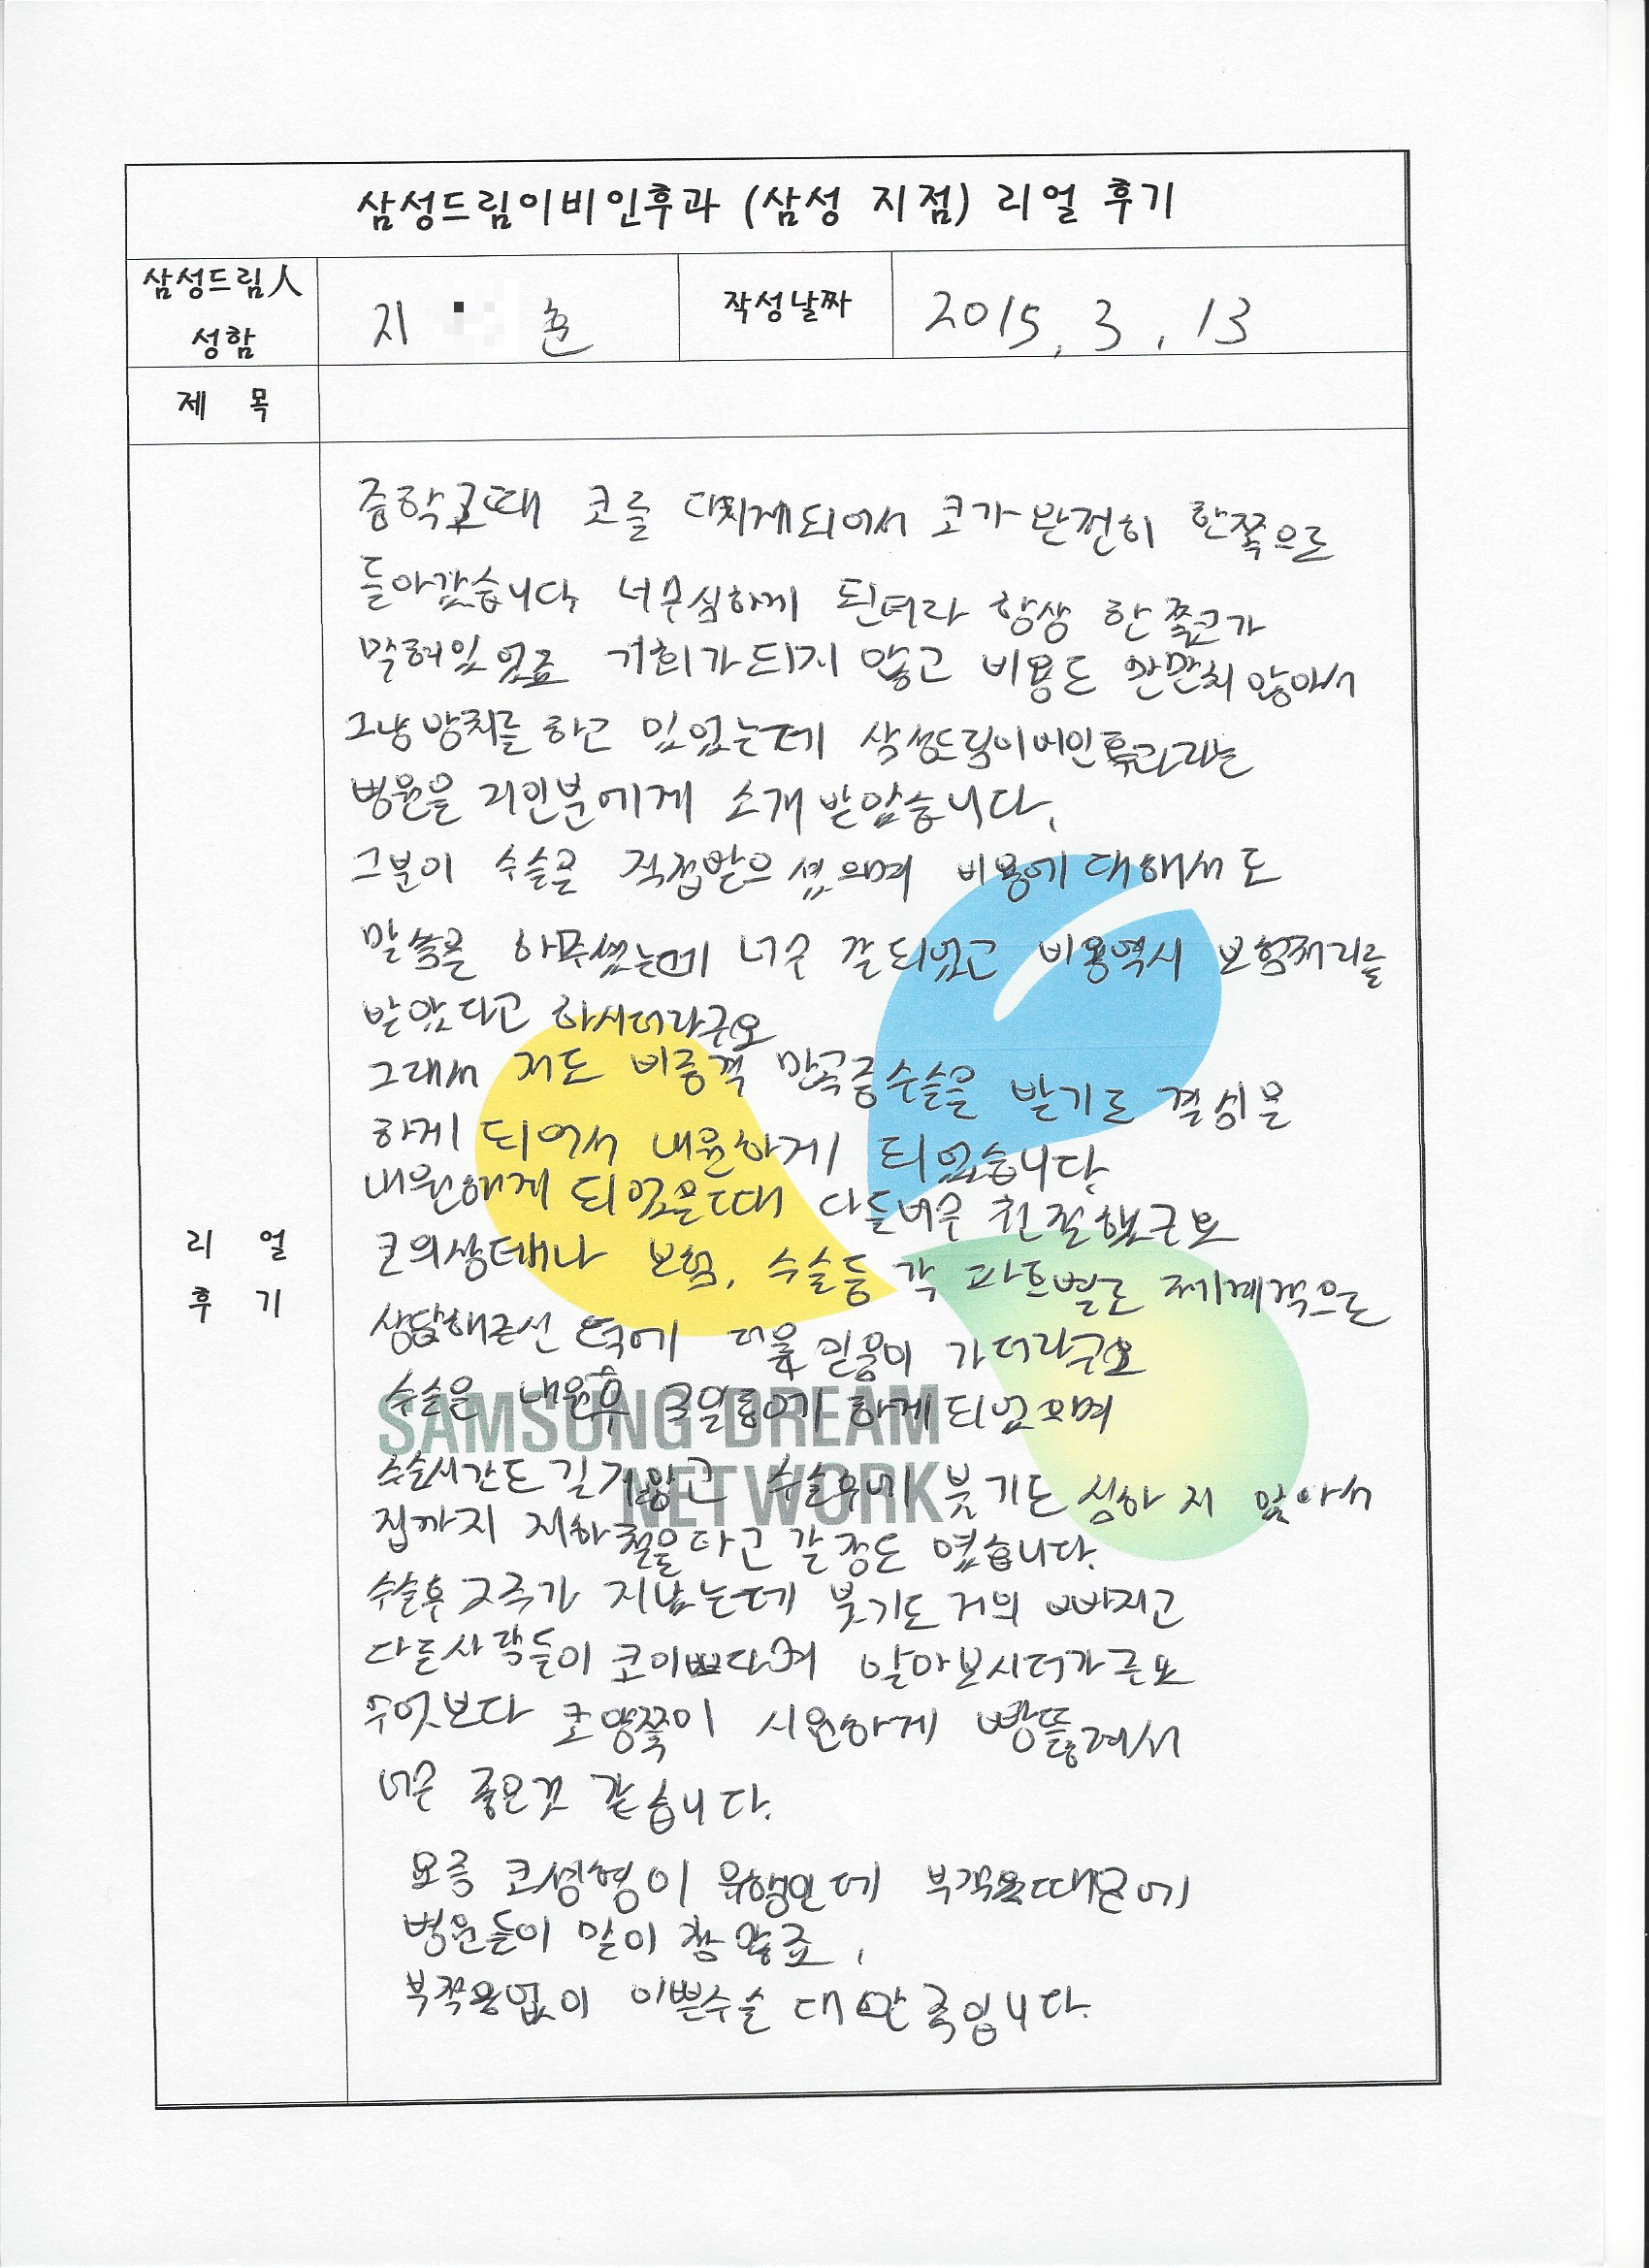 삼성드림이비인후과 (삼성 지점) 리얼 후기
삼성드림人
성함
지 훈
작성날짜
2015. 3. 13
제 목
리 얼
후 기
중학교때 코를 다치게되어서 코가 완전히 한쪽으로
돌아갔습니다. 너무심하게 된터라 항상 한쪽코가
막혀있었죠 기회가되지 않고 비용도 만만치않아서
그냥방치를 하고 있었는데 삼성드림이비인후과라는
병원을 지인분에게 소개받았습니다.
그분이 수술을 직접받으셨으며 비용에대해서도
말씀을 해주셨는데 너무 잘되었고 비용역시 보험처리를
받았다고 하시더라구요
그래서 저도 비중격 만곡증수술을 받기로 결심을
하게 되어서 내원하게 되었습니다.
내원하게 되었을때 다들너무 친절했구요
코의상태나 보험, 수술등 각 파트별로 체계적으로
상담해주신 덕에 더욱 믿음이 가더라구요
수술은 내원후 3일 하게되었으며
수술시간도 길지않고 수술후에 붓기도 심하지 않아서
집까지 지하철을타고 갈정도 였습니다.
수술후 2주가 지났는데 붓기도 거의 빠지고
다른사람들이 코이쁘다며 알아보시더라구요
무엇보다 코양쪽이 시원하게 빵뚫려서
너무 좋은것 같습니다.
요즘 코성형이 유행인데 부작용때문에
병원들이 말이 참많죠,
부작용없이 이쁜수술 대만족입니다.
SAMSUNG DREAM
NETWORK